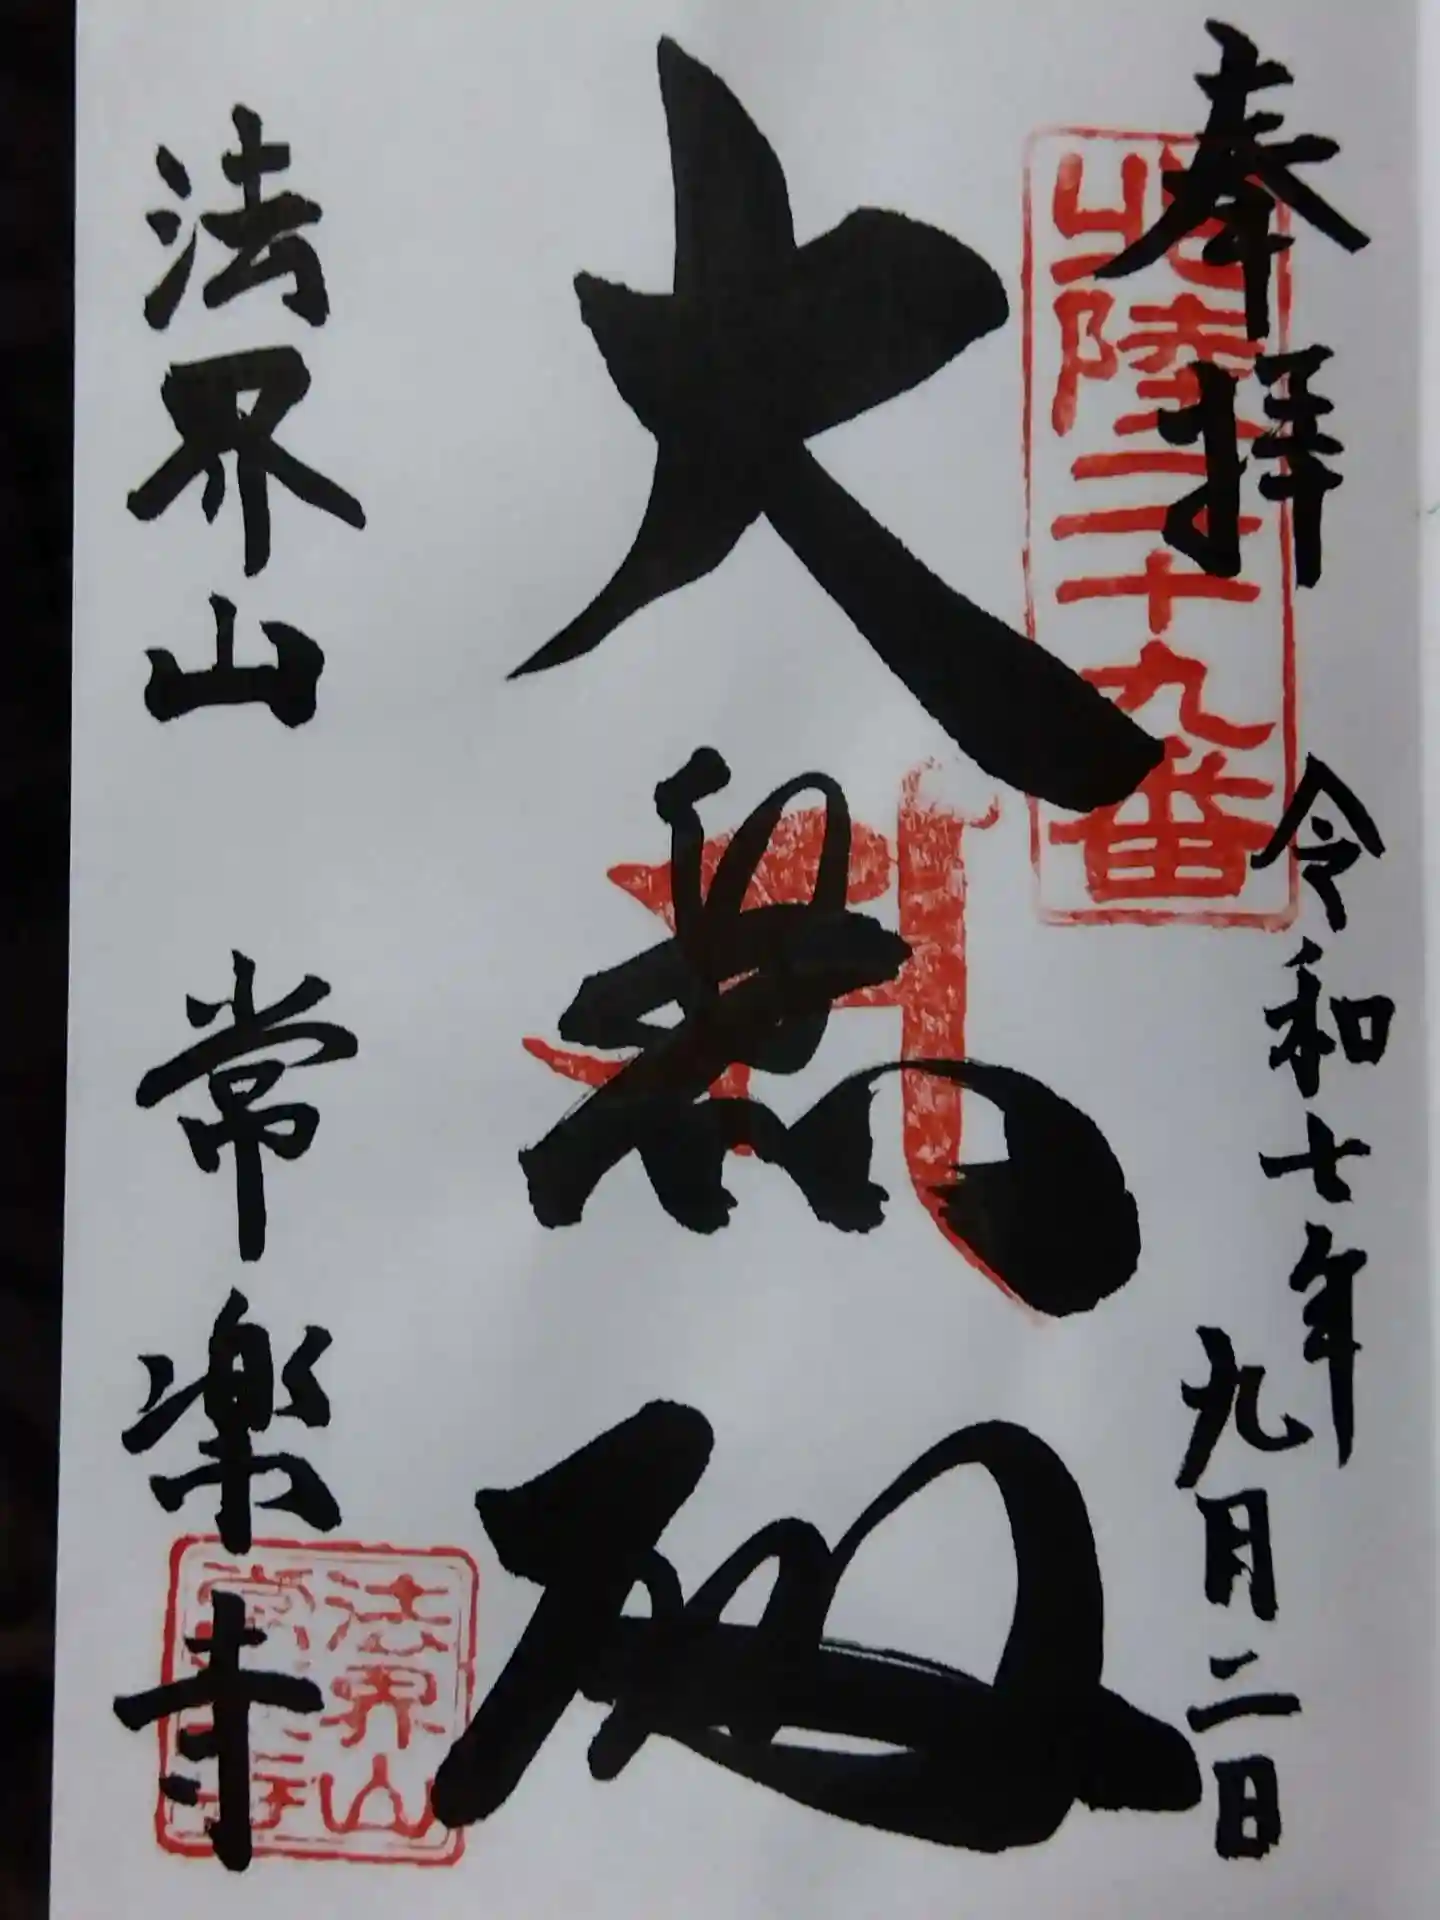 奉拝
北陸二十九番
令和七年
九月二日
大悲殿
法界山 常楽寺
法界山
常楽寺